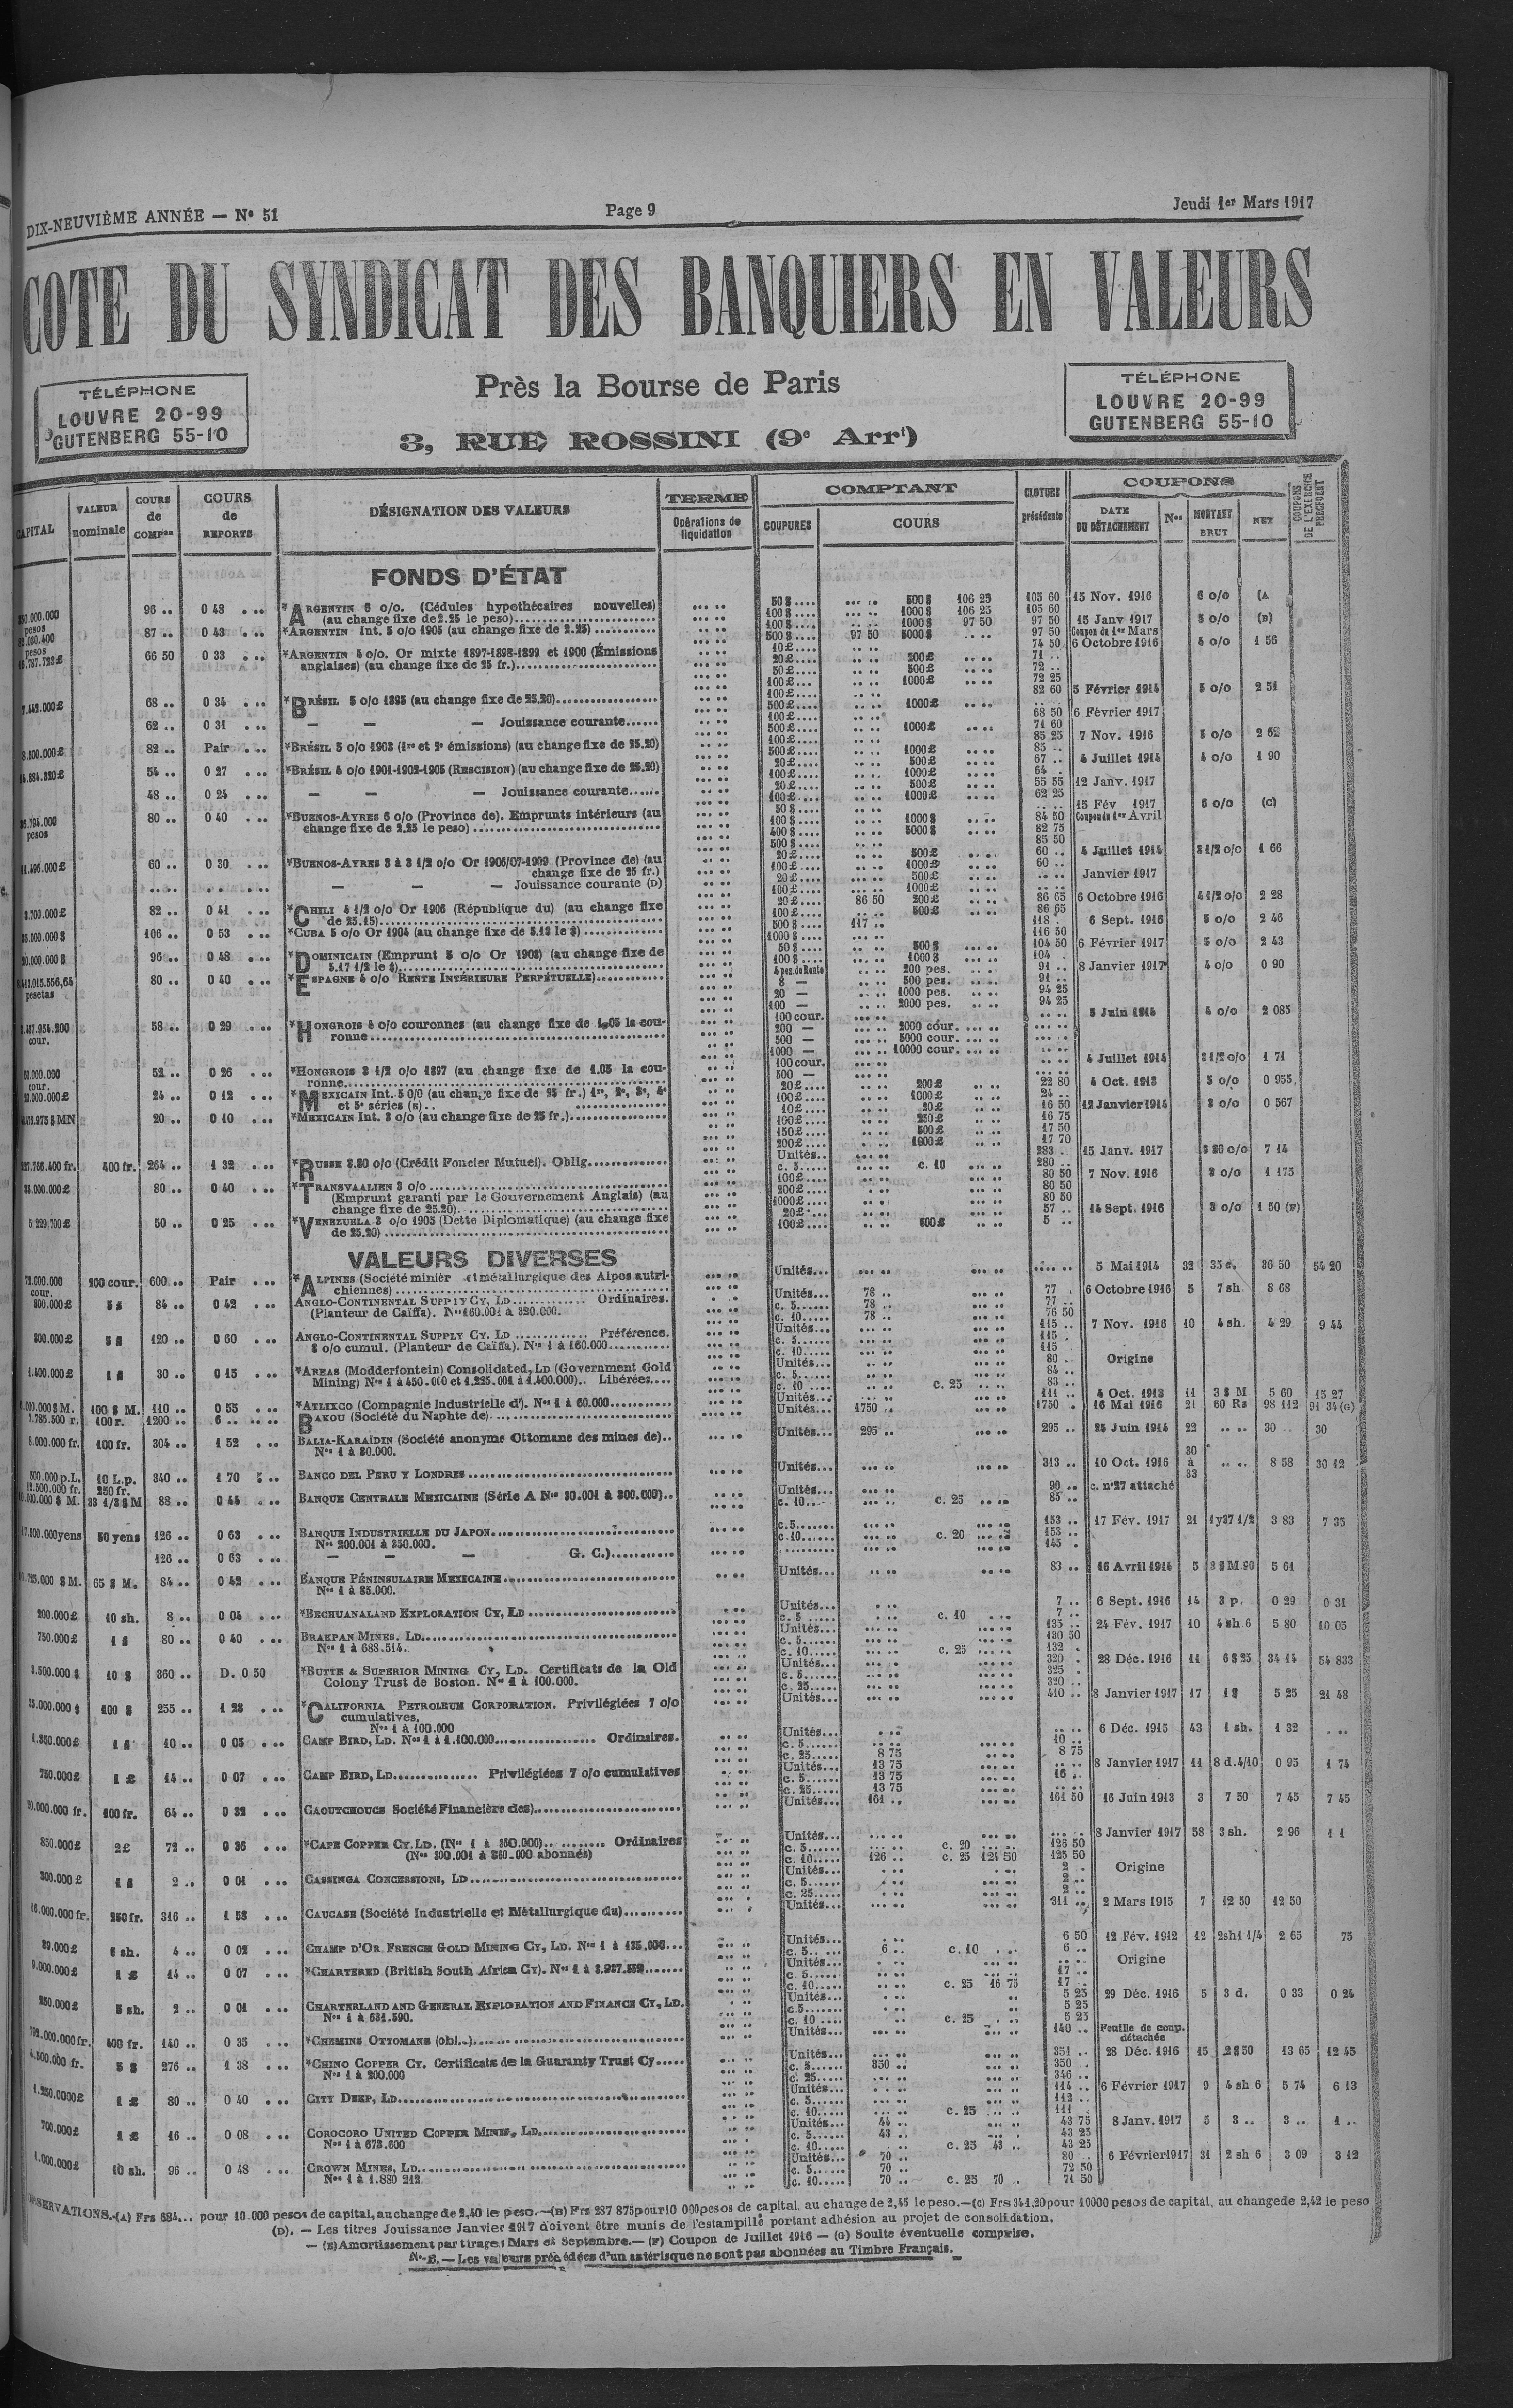 DIX-NEUVIÈME ANNÉE — N° 51
Page 9
Jeudi 1er Mars 1917
COTE DU SYNDICAT DES BANQUIERS EN VALEURS
TÉLÉPHONE
LOUVRE 20-99
GUTENBERG 55-10
Près la Bourse de Paris
3, RUE ROSSINI (9e Arrt)
TÉLÉPHONE
LOUVRE 20-99
GUTENBERG 55-10
CAPITAL VALEUR nominale COURS de COMPon COURS de REPORTS DÉSIGNATION DES VALEURS TERME Opérations de liquidation COMPTANT COUPURES COURS CLOTURE précédente COUPONS DATE DU DÉTACHEMENT Nos MONTANT BRUT NET COUPONS DE L'EXERCICE PRÉCÉDENT
FONDS D'ÉTAT
96 .. 0 48 *ARGENTIN 6 o/o. (Cédules hypothécaires nouvelles) 50 $.... 500 $ 106 25 105 60 15 Nov. 1916 6 o/o (A
pesos (au change fixe de 2.25 le peso) 100 $.... 1000 $ 106 25 105 60
87 .. 0 43 *ARGENTIN Int. 5 o/o 1905 (au change fixe de 2.25) 100 $.... 1000 $ 97 50 97 50 15 Janv 1917 5 o/o (B)
pesos 500 $.... 97 50 5000 $ 97 50 Coupon du 1er Mars
66 50 0 33 *ARGENTIN 4 o/o. Or mixte 1897-1898-1899 et 1900 (Émissions 10 £.... 74 50 6 Octobre 1916 4 o/o 1 56
anglaises) (au change fixe de 25 fr.) 20 £.... 200 £ 71 ..
50 £.... 500 £ 72 ..
100 £.... 1000 £ 72 25
7.442.000 £ 68 .. 0 34 *BRÉSIL 5 o/o 1895 (au change fixe de 25.20) 100 £.... 82 60 5 Février 1914 5 o/o 2 51
500 £.... 1000 £
62 .. 0 31 — — — Jouissance courante 100 £.... 68 50 6 Février 1917
500 £.... 1000 £ 71 60
8.500.000 £ 82 .. Pair *BRÉSIL 5 o/o 1903 (1re et 2e émissions) (au change fixe de 25.20) 100 £.... 85 25 7 Nov. 1916 5 o/o 2 62
500 £.... 1000 £ 85 ..
54 .. 0 27 *BRÉSIL 4 o/o 1901-1902-1905 (RESCISION) (au change fixe de 25.20) 20 £.... 500 £ 67 .. 4 Juillet 1914 4 o/o 1 90
100 £.... 1000 £ 64 .
48 .. 0 24 — — — Jouissance courante 20 £.... 500 £ 55 55 12 Janv. 1917
100 £.... 1000 £ 62 25
80 .. 0 40 *BUENOS-AYRES 6 o/o (Province de). Emprunts intérieurs (au 50 $.... 15 Fév 1917 6 o/o (C)
pesos change fixe de 2.25 le peso) 100 $.... 1000 $ 84 50 Coupon du 1er Avril
400 $.... 5000 $ 82 75
500 $.... 85 50
60 .. 0 30 *BUENOS-AYRES 3 à 3 1/2 o/o Or 1906/07-1909 (Province de) (au 20 £.... 500 £ 60 .. 4 Juillet 1914 3 1/2 o/o 1 66
change fixe de 25 fr.) 100 £.... 1000 £ 60 ..
— — — Jouissance courante (D) 20 £.... 500 £ Janvier 1917
100 £.... 1000 £
3.700.000 £ 82 .. 0 41 *CHILI 4 1/2 o/o Or 1906 (République du) (au change fixe 20 £.... 86 50 200 £ 86 65 6 Octobre 1916 4 1/2 o/o 2 28
de 25.15) 100 £.... 500 £ 86 65
106 .. 0 53 *CUBA 5 o/o Or 1904 (au change fixe de 5.18 le $) 500 $.... 117 .. 118 . 6 Sept. 1916 5 o/o 2 46
1000 $.... 116 50
96 .. 0 48 *DOMINICAIN (Emprunt 5 o/o Or 1908) (au change fixe de 50 $.... 500 $ 104 50 6 Février 1917 5 o/o 2 43
5.17 1/2 le $) 100 $.... 1000 $ 104 .
80 .. 0 40 *ESPAGNE 4 o/o RENTE INTÉRIEURE PERPÉTUELLE) 4 pes. de Rente 200 pes. 91 .. 8 Janvier 1917 4 o/o 0 90
pesetas 8 — 500 pes. 91 ..
20 — 1000 pes. 94 25
100 — 2000 pes. 94 25
58 .. 0 29 *HONGROIS 4 o/o couronnes (au change fixe de 1.05 la cou- 100 cour. 5 Juin 1914 4 o/o 2 085
cour. ronne 200 — 2000 cour.
500 — 5000 cour.
1000 — 10000 cour.
52 .. 0 26 *HONGROIS 3 1/2 o/o 1897 (au change fixe de 1.05 la cou- 100 cour. 4 Juillet 1914 3 1/2 o/o 1 71
cour. ronne 500 —
24 .. 0 12 *MEXICAIN Int. 5 0/0 (au change fixe de 25 fr.) 1re, 2e, 3e, 4e 20 £.... 200 £ 22 80 4 Oct. 1913 5 o/o 0 955
et 5e séries (E) 100 £.... 1000 £ 24 ..
20 .. 0 10 *MEXICAIN Int. 3 o/o (au change fixe de 25 fr.) 10 £.... 20 £ 16 50 12 Janvier 1914 3 o/o 0 567
100 £.... 250 £ 16 75
150 £.... 500 £ 17 50
200 £.... 1000 £ 17 70
400 fr. 264 .. 1 32 *RUSSE 3.80 o/o (Crédit Foncier Mutuel). Oblig. Unités.. 283 . 15 Janv. 1917 3 80 o/o 7 14
c. 5..... c. 10 280 ..
80 .. 0 40 *TRANSVAALIEN 3 o/o 100 £.... 80 50 7 Nov. 1916 3 o/o 1 175
(Emprunt garanti par le Gouvernement Anglais) (au 200 £.... 80 50
change fixe de 25.20) 1000 £.... 80 50
5 229.700 £ 50 .. 0 25 *VENEZUELA 3 o/o 1905 (Dette Diplomatique) (au change fixe 20 £.... 57 .. 14 Sept. 1916 3 o/o 1 50 (F)
de 25.20) 100 £.... 500 £ 5 ..
VALEURS DIVERSES
72.000.000 cour. 200 cour. 600 .. Pair *ALPINES (Société minièr et métallurgique des Alpes autri- Unités... 5 Mai 1914 32 36 50 54 20
chiennes)
800.000 £ 84 .. 0 42 ANGLO-CONTINENTAL SUPPLY CY, LD Ordinaires. Unités... 78 .. 77 . 6 Octobre 1916 5 7 sh. 8 68
(Planteur de Caïffa). Nos 160.001 à 320.000. c. 5..... 78 .. 77 ..
c. 10..... 78 .. 76 50
800.000 £ 120 .. 0 60 ANGLO-CONTINENTAL SUPPLY CY. LD Préférence. Unités... 115 .. 7 Nov. 1916 10 4 sh. 4 29 9 44
8 o/o cumul. (Planteur de Caïffa). Nos 1 à 160.000 c. 5..... 115 .
c. 10..... 115 .
1.400.000 £ 30 .. 0 15 *AREAS (Modderfontein) Consolidated, LD (Government Gold Unités... 80 .. Origine
Mining) Nos 1 à 450.000 et 1.225.001 à 1.400.000).. Libérées c. 5..... 84 ..
c. 10 c. 25 83 ..
100 $ M. 110 .. 0 55 *ATLIXCO (Compagnie Industrielle d'). Nos 1 à 60.000 Unités... 111 .. 4 Oct. 1913 11 3 $ M 5 60 15 27
100 r. 1200 .. 6 .. BAKOU (Société du Naphte de) Unités... 1750 .. 1750 . 16 Mai 1916 21 60 Rs 98 112 91 34 (G)
8.000.000 fr. 100 fr. 304 .. 1 52 BALIA-KARAÏDIN (Société anonyme Ottomane des mines de).. Unités... 295 .. 295 .. 25 Juin 1914 22 30 .. 30
Nos 1 à 80.000.
10 L.p. 340 .. 1 70 BANCO DEL PERU Y LONDRES Unités... 313 .. 10 Oct. 1916 30 à 33 8 58 30 12
250 fr.
33 1/3 $ M 88 .. 0 44 BANQUE CENTRALE MEXICAINE (Série A Nos 30.001 à 300.000).. Unités... 90 .. c. n°27 attaché
c. 10... c. 25 85 ..
50 yens 126 .. 0 63 BANQUE INDUSTRIELLE DU JAPON c. 5..... 153 .. 17 Fév. 1917 21 1y37 1/2 3 83 7 35
Nos 200.001 à 350.000. c. 10..... c. 20 153 ..
126 .. 0 63 — — — G. C.) 145 .
65 $ M. 84 .. 0 42 BANQUE PÉNINSULAIRE MEXICAINE Unités... 83 .. 16 Avril 1914 5 5 61
Nos 1 à 85.000.
200.000 £ 10 sh. 8 .. 0 04 *BECHUANALAND EXPLORATION CY, LD Unités... 7 .. 6 Sept. 1916 14 3 p. 0 29 0 31
c. 5..... c. 10 7 ..
750.000 £ 80 .. 0 40 BRAKPAN MINES. LD Unités... 135 .. 24 Fév. 1917 10 4 sh 6 5 80 10 05
Nos 1 à 688.514. c. 5..... 130 50
c. 10..... c. 25 132 .
10 $ 360 .. D. 0 50 *BUTTE & SUPERIOR MINING CY, LD. Certificats de la Old Unités... 320 . 28 Déc. 1916 11 6 $ 25 34 14 54 833
Colony Trust de Boston. Nos 1 à 100.000. c. 5..... 325 .
c. 25..... 320 ..
100 $ 255 .. 1 28 *CALIFORNIA PETROLEUM CORPORATION. Privilégiées 7 o/o Unités... 410 .. 8 Janvier 1917 17 1 $ 5 25 21 48
cumulatives.
Nos 1 à 100.000
10 .. 0 05 CAMP BIRD, LD. Nos 1 à 1.100.000 Ordinaires. Unités... 6 Déc. 1915 43 1 sh. 1 32
c. 5..... 10 ..
c. 25..... 8 75 8 75
750.000 £ 1 £ 14 .. 0 07 CAMP BIRD, LD Privilégiées 7 o/o cumulatives Unités... 13 75 8 Janvier 1917 11 8 d.4/10 0 95 1 74
c. 5..... 13 75 16 ..
c. 25..... 13 75
100 fr. 64 .. 0 32 CAOUTCHOUCS Société Financière des) Unités... 161 .. 161 50 16 Juin 1913 3 7 50 7 45 7 45
850.000 £ 2 £ 72 .. 0 36 *CAPE COPPER CY. LD. (Nos 1 à 350.000) Ordinaires Unités... 8 Janvier 1917 58 3 sh. 2 96 1 1
(Nos 300.001 à 350.000 abonnés) c. 5..... c. 20 126 50
c. 10..... 126 .. c. 25 124 50 125 50
300.000 £ 2 .. 0 01 CASSINGA CONCESSIONS, LD Unités... 2 .. Origine
c. 5..... 2 ..
c. 25..... 2 ..
250 fr. 316 .. 1 58 CAUCASE (Société Industrielle et Métallurgique du) Unités... 311 .. 2 Mars 1915 7 12 50 12 50
6 sh. 4 .. 0 02 CHAMP D'OR FRENCH GOLD MINING CY, LD. Nos 1 à 135.000... Unités... 6 50 12 Fév. 1912 12 2sh1 1/4 2 65 75
c. 5..... 6 .. c. 10 6 ..
1 £ 14 .. 0 07 *CHARTERED (British South Africa CY). Nos 1 à Unités... Origine
c. 5..... 17 ..
c. 10..... c. 25 16 75 17 ..
5 sh. 2 .. 0 01 CHARTERLAND AND GENERAL EXPLORATION AND FINANCE CY, LD. Unités... 5 25 29 Déc. 1916 5 3 d. 0 33 0 24
Nos 1 à 631.590. c. 5..... 5 25
c. 10 .... c. 25 5 25
400 fr. 140 .. 0 35 *CHEMINS OTTOMANS (obl..) Unités... 140 .. Feuille de coup. détachée
5 $ 276 .. 1 38 *CHINO COPPER CY. Certificats de la Guaranty Trust CY Unités... 351 .. 28 Déc. 1916 15 2 $ 50 13 65 12 45
Nos 1 à 200.000 c. 5..... 350 .. 350 .
c. 25..... 346 ..
1 £ 80 .. 0 40 CITY DEEP, LD Unités... 114 .. 6 Février 1917 9 4 sh 6 5 74 6 13
c. 5..... 112 ..
c. 10..... c. 25 111 .
700.000 £ 1 £ 16 .. 0 08 COROCORO UNITED COPPER MINES, LD Unités... 44 .. 43 75 8 Janv. 1917 5 3 .. 3 .. 1 ..
Nos 1 à 673.600 c. 5..... 43 .. 43 25
c. 10..... c. 25 43 .. 43 25
1.000.000 £ 10 sh. 96 .. 0 48 CROWN MINES, LD Unités... 70 .. 80 .. 6 Février 1917 31 2 sh 6 3 09 3 12
Nos 1 à 1.880 212 c. 5..... 70 .. 72 50
c. 10..... 70 .. c. 25 70 .. 71 50
OBSERVATIONS.-(A) Frs 684... pour 10.000 pesos de capital, au change de 2,40 le peso.—(B) Frs 287 875 pour 10 000 pesos de capital, au change de 2,45 le peso.—(C) Frs 341,20 pour 10000 pesos de capital, au change de 2,42 le peso
(D). — Les titres Jouissance Janvier 1917 doivent être munis de l'estampille portant adhésion au projet de consolidation.
— (E) Amortissement par tirages Mars et Septembre.— (F) Coupon de Juillet 1916 — (G) Soulte éventuelle comprise.
N.-B. — Les valeurs précédées d'un astérisque ne sont pas abonnées au Timbre Français.